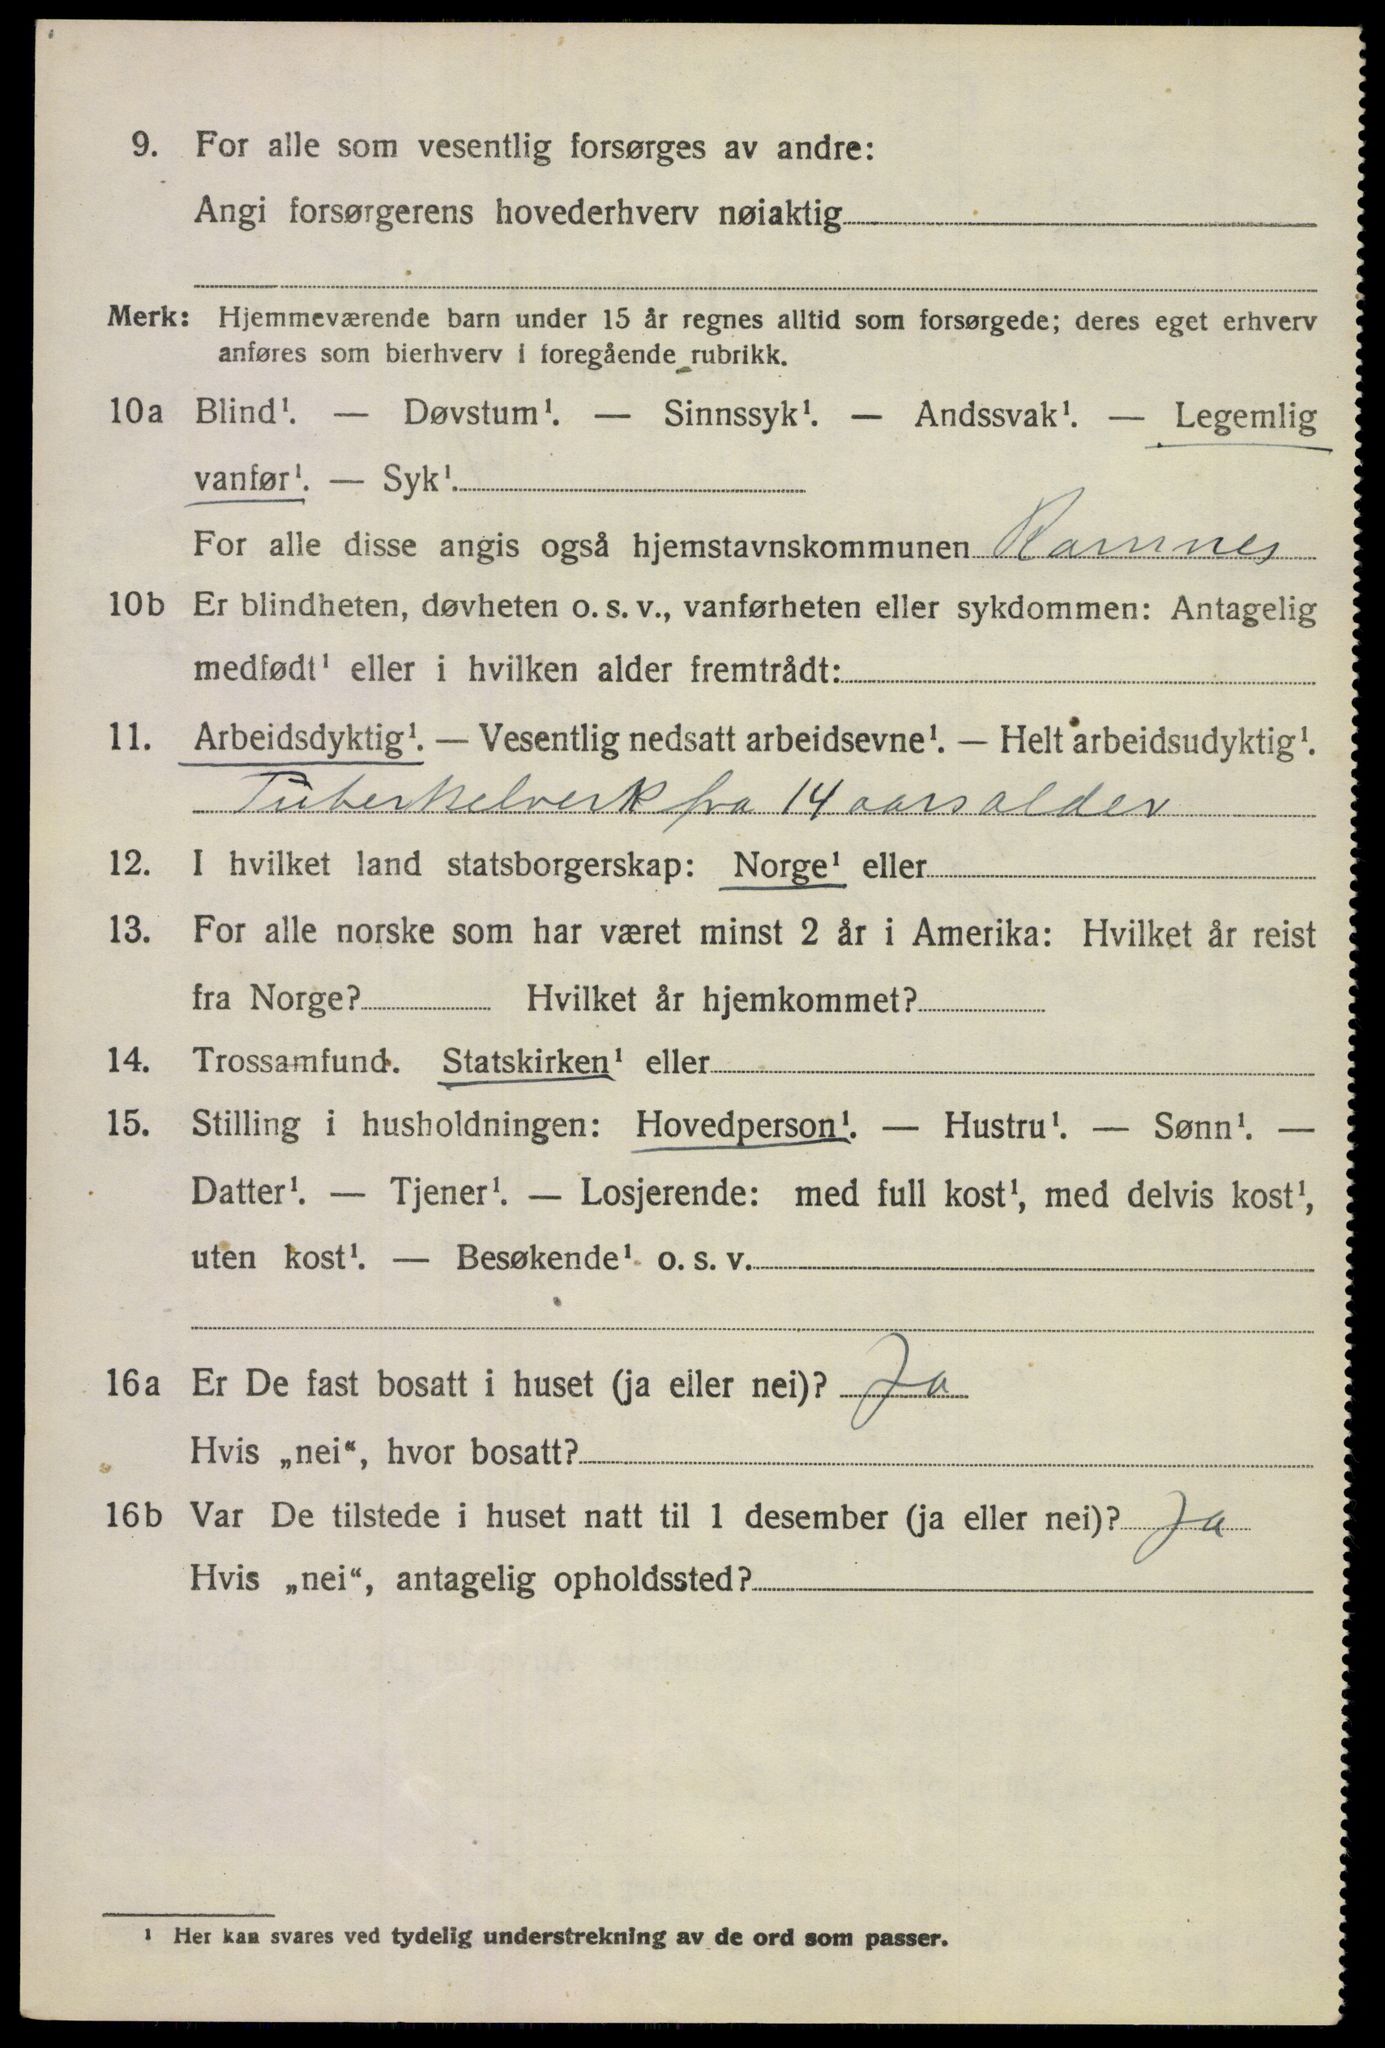 9. For alle som vesentlig forsørges av andre:
Angi forsørgerens hovederhverv nøiaktig
Merk: Hjemmeværende barn under 15 år regnes alltid som forsørgede; deres eget erhverv
anføres som bierhverv i foregående rubrikk.
10a Blind¹. — Døvstum¹. — Sinnssyk¹. — Andssvak¹. — Legemlig
vanfør¹. — Syk¹.
For alle disse angis også hjemstavnskommunen Ramnes
10b Er blindheten, døvheten o. s. v., vanførheten eller sykdommen: Antagelig
medfødt¹ eller i hvilken alder fremtrådt:
11. Arbeidsdyktig¹. — Vesentlig nedsatt arbeidsevne¹. — Helt arbeidsudyktig¹.
Tuberkelverk fra 14 aars alder
12. I hvilket land statsborgerskap: Norge¹ eller
13. For alle norske som har været minst 2 år i Amerika: Hvilket år reist
fra Norge? Hvilket år hjemkommet?
14. Trossamfund. Statskirken¹ eller
15. Stilling i husholdningen: Hovedperson¹. — Hustru¹. — Sønn¹. —
Datter¹. — Tjener¹. — Losjerende: med full kost¹, med delvis kost¹,
uten kost¹. — Besøkende¹ o. s. v.
16a Er De fast bosatt i huset (ja eller nei)? Ja
Hvis „nei“, hvor bosatt?
16b Var De tilstede i huset natt til 1 desember (ja eller nei)? Ja
Hvis „nei“, antagelig opholdssted?
¹ Her kan svares ved tydelig understrekning av de ord som passer.